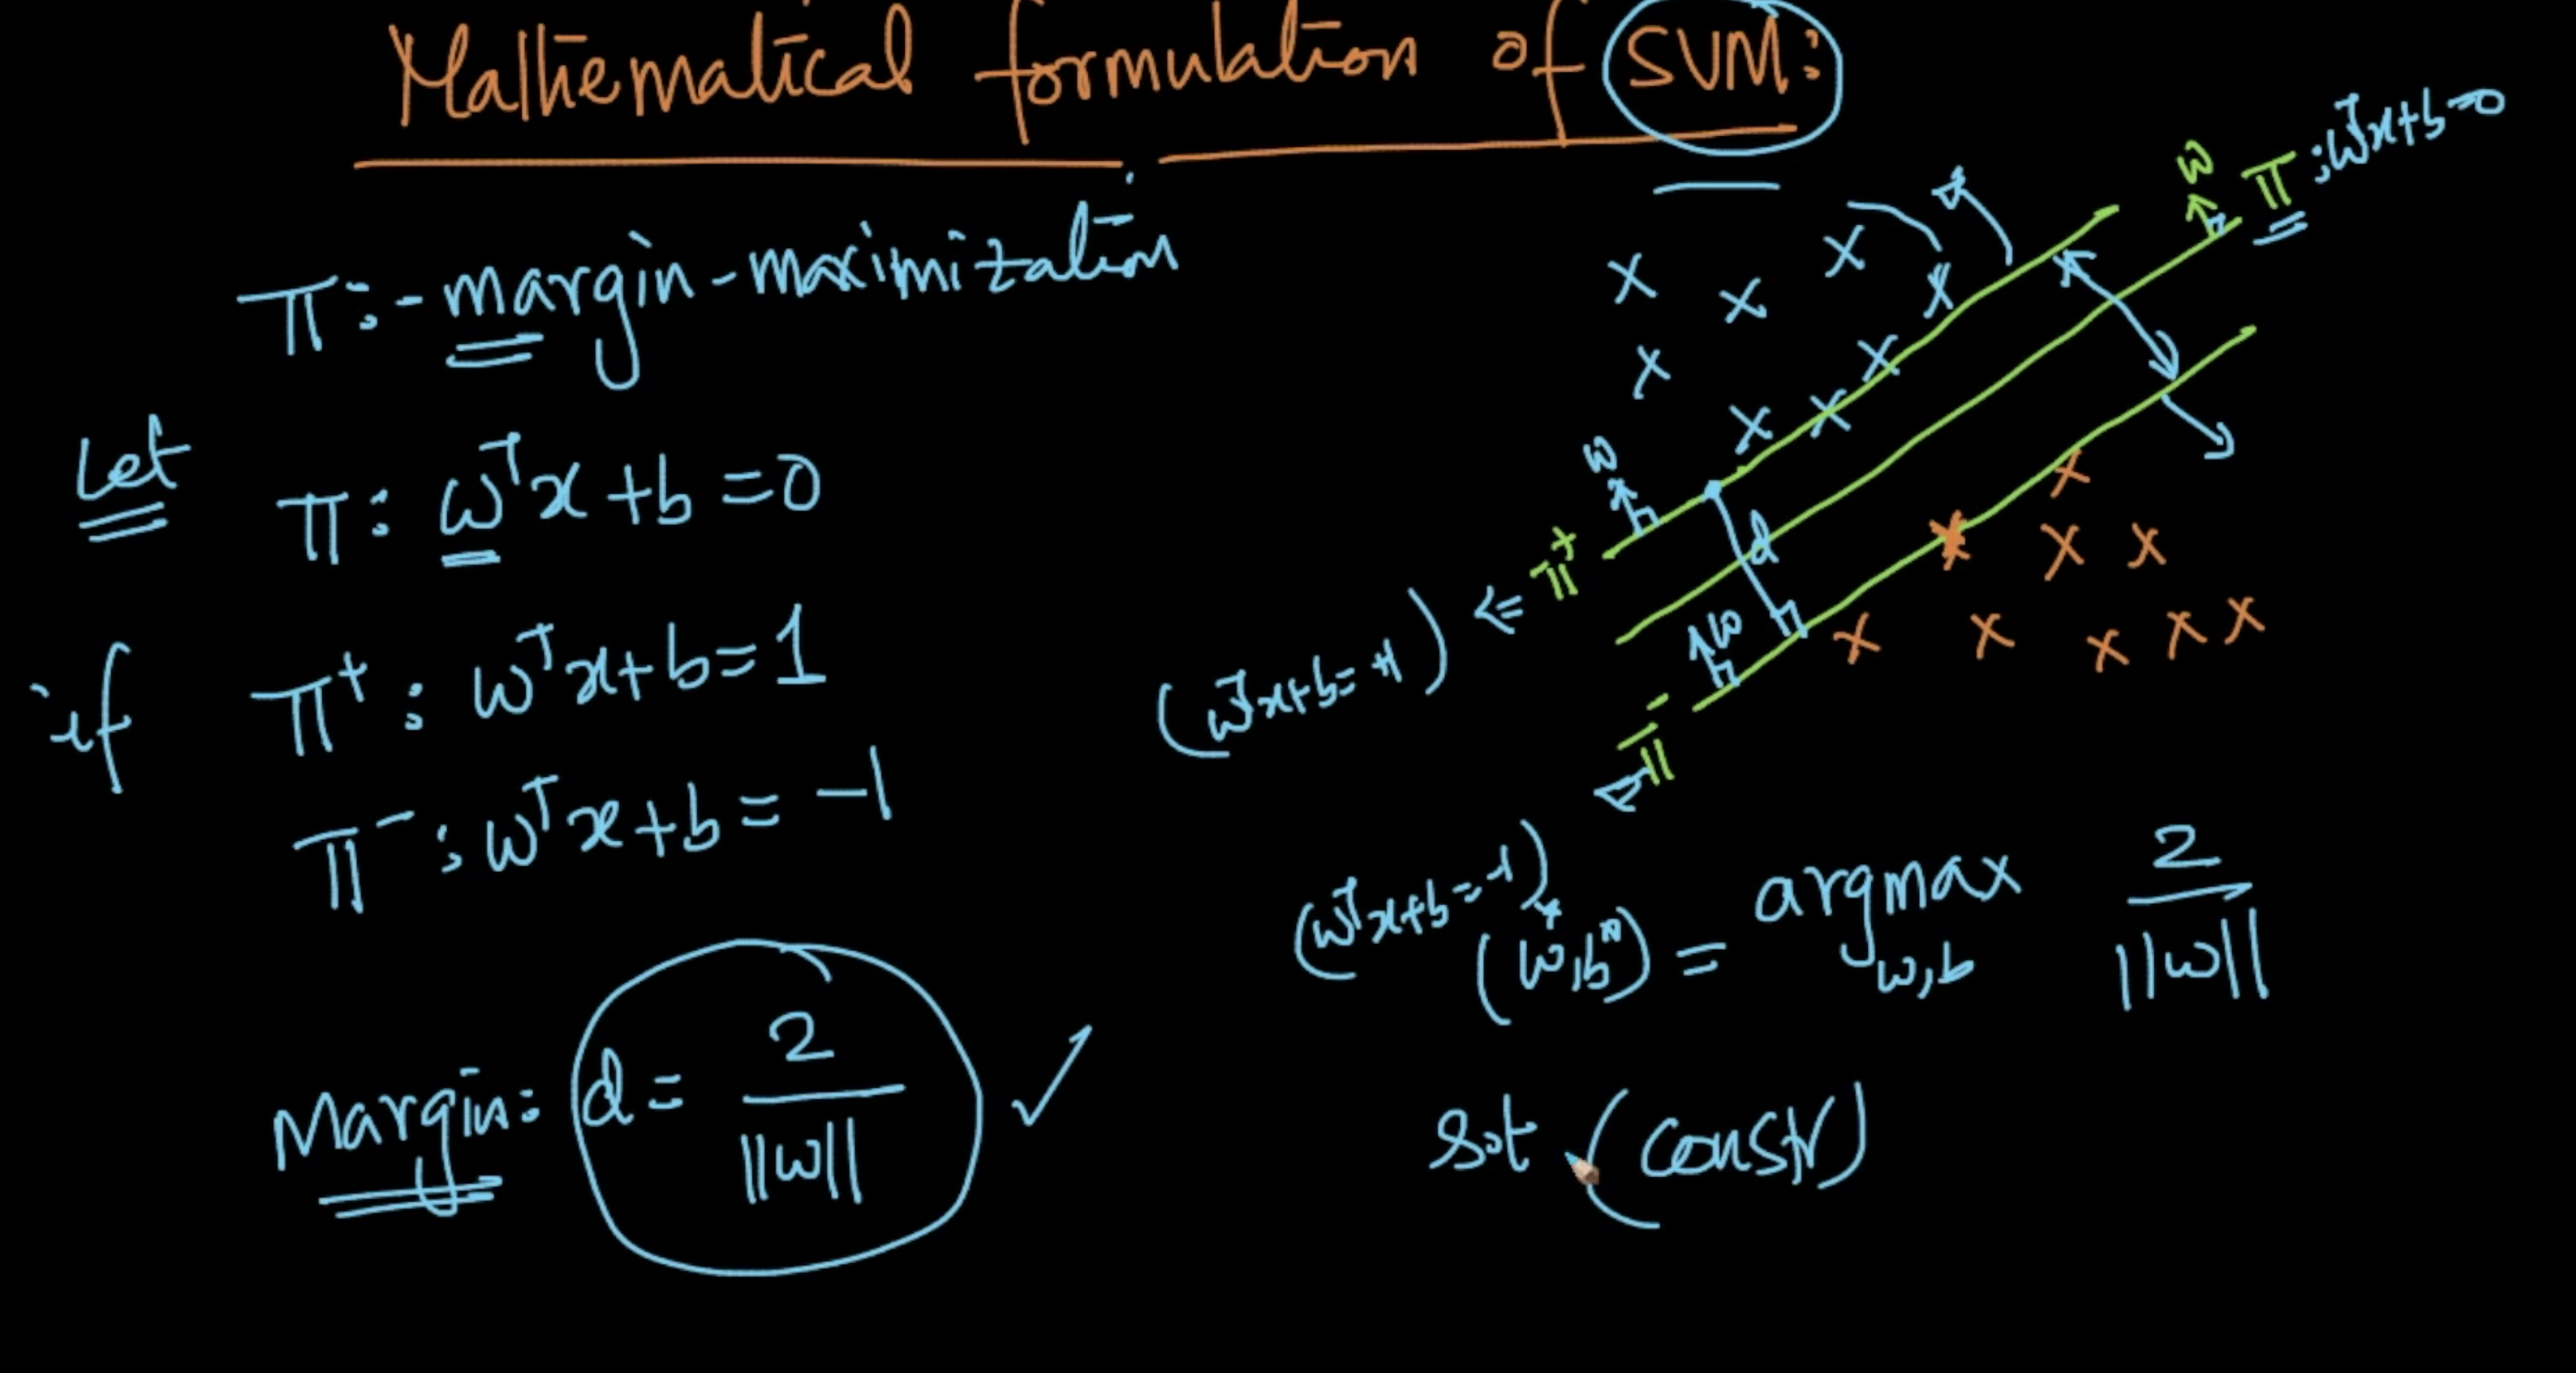 Mathematical formulation of SVM:
π:- margin-maximization
Let π: wᵀx+b=0
if π⁺: wᵀx+b=1
π⁻: wᵀx+b=-1
Margin: d= 2/||w|| ✓
w π: wᵀx+b=0
w
π⁺
(wᵀx+b=+1) ⇐
d
w
π⁻
(wᵀx+b=-1)
(w*,b*) = argmax w,b 2/||w||
s.t (constr)